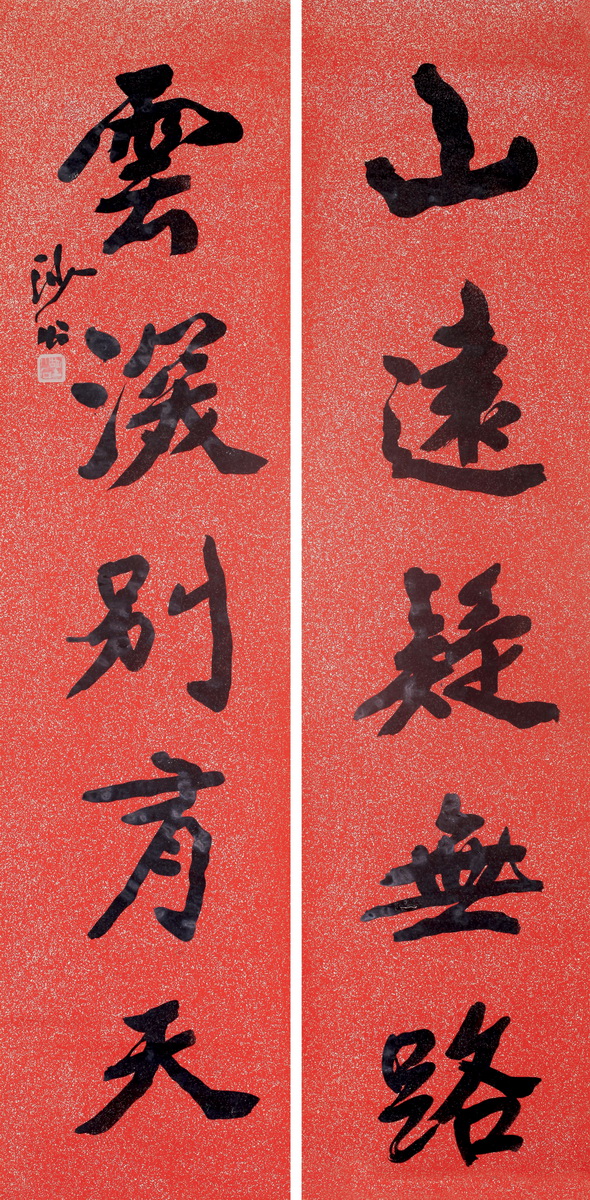 山遠疑無路
雲深別有天
沙書